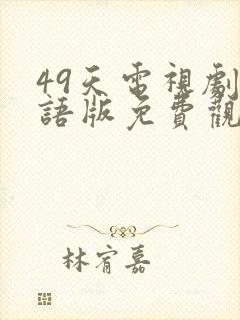 49天電視劇
語版免費觀
林宥嘉